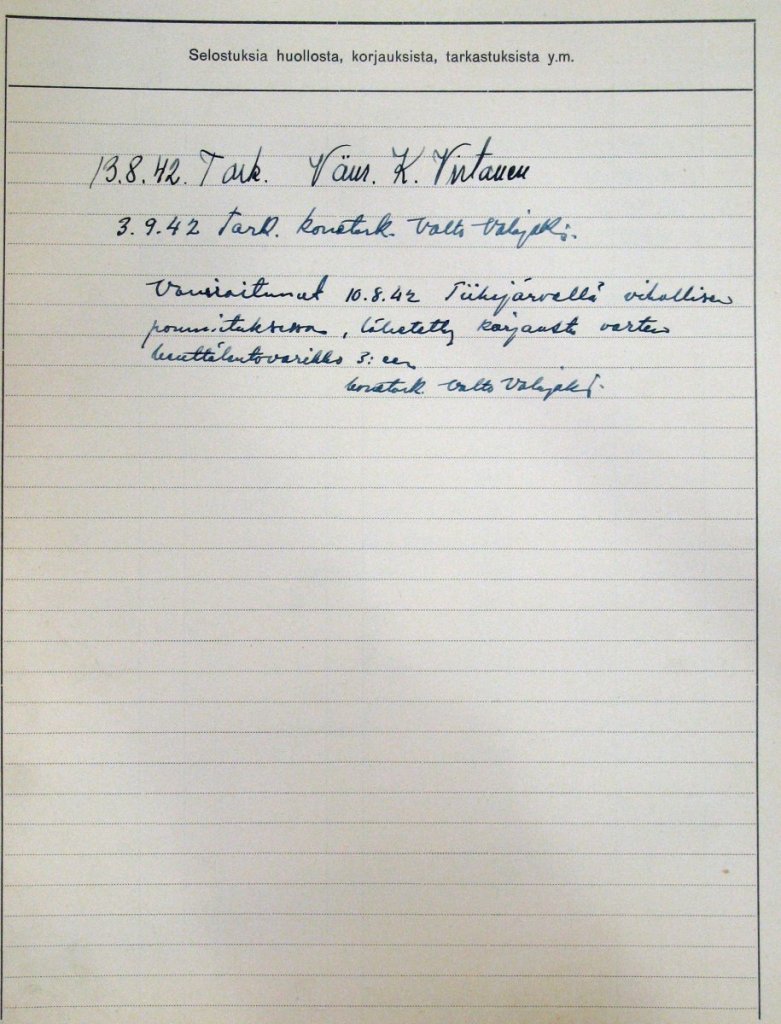 Selostuksia huollosta, korjauksista, tarkastuksista y.m.
13.8.42. Tark. Vänr. K. Virtanen
3.9.42 Tark. konetark. Valto Välijoki.
Vaurioitunut 10.8.42 Tiiksjärvellä vihollisen
pommituksessa, lähetetty korjausta varten
kenttälentovarikko 3:een
konetark. Valto Välijoki.